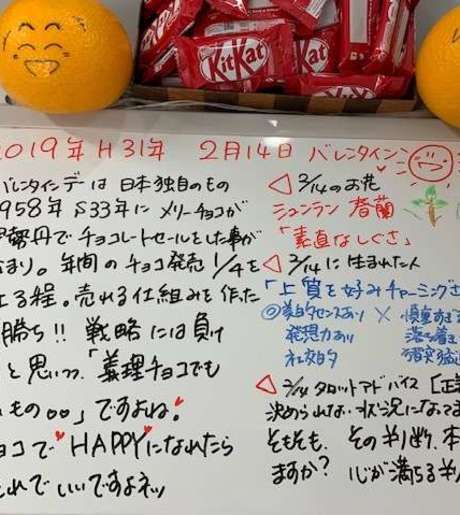 KitKat
KitKat
2019年 H31年 2月14日 バレンタイン
バレンタインデーは 日本独自のもの
1958年 S33年に メリーチョコが
勢丹で チョコレートセールをした事が
まり。年間のチョコ発売 1/4を
る程。売れる仕組みを作った
勝ち!! 戦略には負け
と思いつつ、「義理チョコでも
もの。。」ですよね。
ョコで HAPPYになれたら
れでいいですよネッ
2/14のお花
シュンラン 春蘭
「素直なしぐさ」
2/14に 生まれた人
「上質を好みチャーミングさ
◎美的センスあり ×
発想力あり
社交的
2/14 タロットアドバイス [正
決められない状況になってま
そもそも、その判断、本
ますか? 心が満ちる判